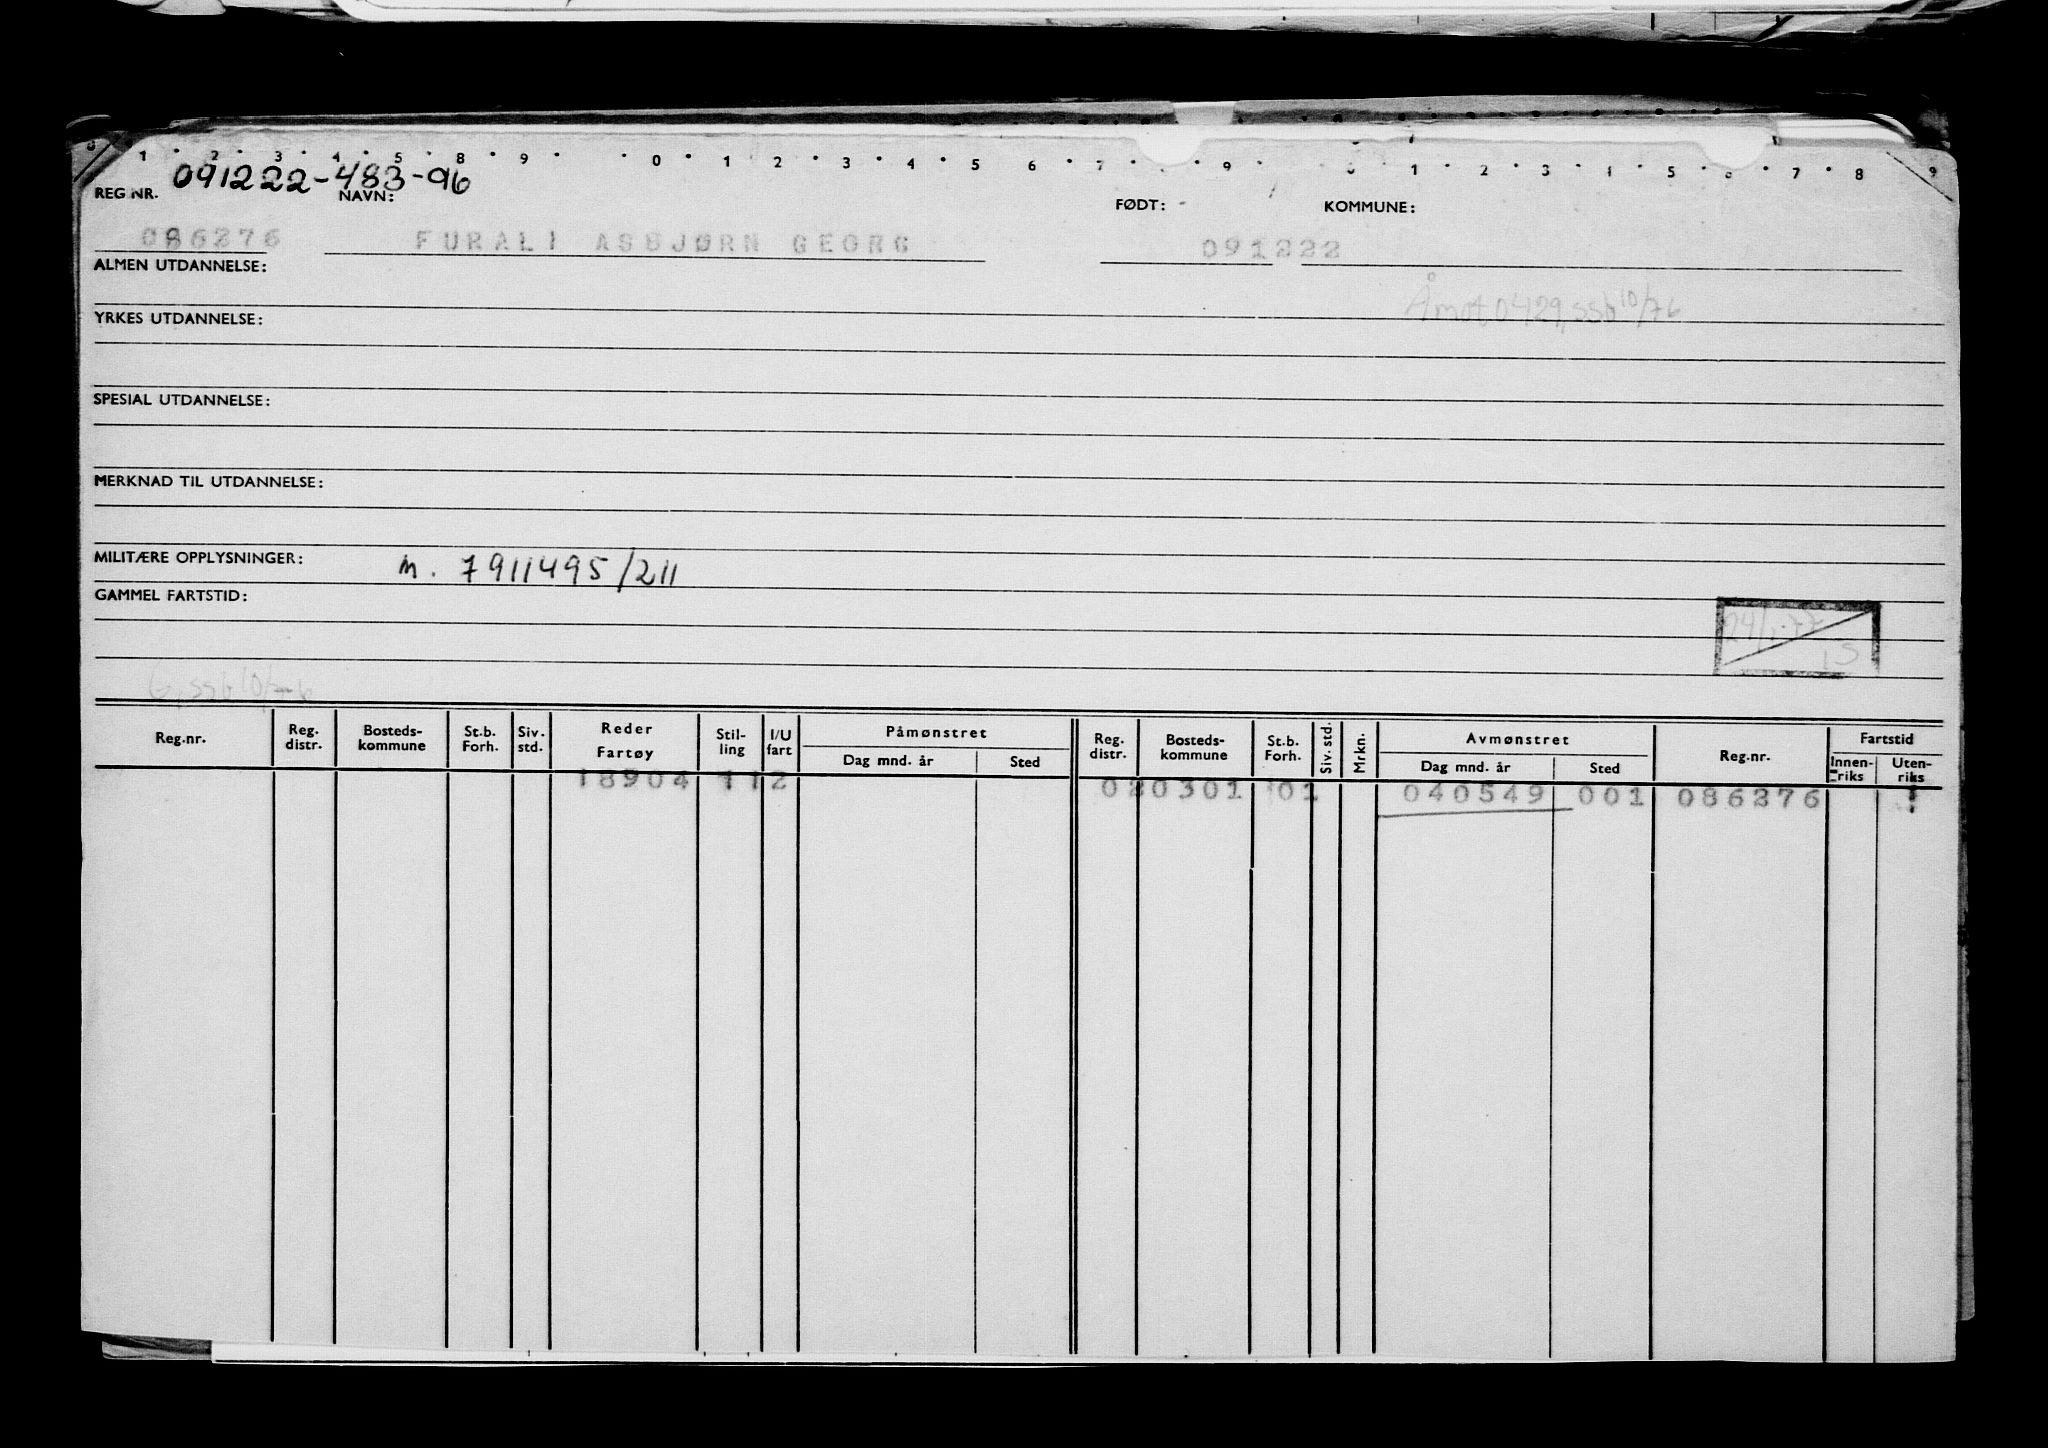 1 2 3 4 5 8 9 0 1 2 3 4 5 6 7 9 1 2 3 1 5 7 8 9
091222-483-96
REG NR. NAVN: FØDT: KOMMUNE:
086276 FURALI ASBJØRN GEORG 091222
ALMEN UTDANNELSE:
Åmot 0429, ssb 10/76
YRKES UTDANNELSE:
SPESIAL UTDANNELSE:
MERKNAD TIL UTDANNELSE:
MILITÆRE OPPLYSNINGER: M. 7911495/211
GAMMEL FARTSTID:
24/1-77
IS
G, ssb 10/76
Reg.nr. Reg. distr. Bosteds-kommune St.b. Forh. Siv. std. Reder Fartøy Stil-ling I/U fart Påmønstret Dag mnd. år Sted Reg. distr. Bosteds-kommune St.b. Forh. Siv. std. Mrkn. Avmønstret Dag mnd. år Sted Reg.nr. Fartstid Innen-riks Uten-riks
18904 112 020301 01 040549 001 086276